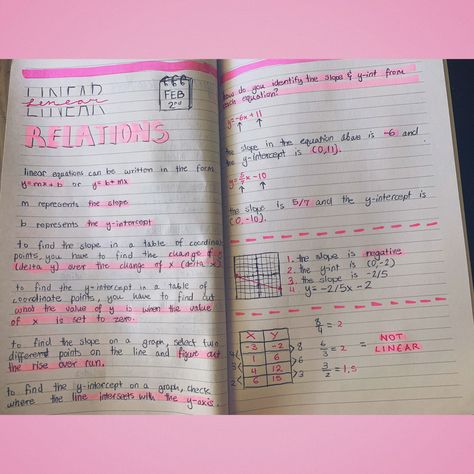 LINEAR
linear
LINEAR
FEB
2nd
RELATIONS
linear equations can be written in the form
y=mx+b or y=b+mx
m represents the slope
b represents the y-intercept
to find the slope in a table of coordinate
points, you have to find the change of y
(delta y) over the change of x (delta x)
to find the y-intercept in a table of
coordinate points, you have to find out
what the value of y is when the value
of x is set to zero.
to find the slope on a graph, select two
different points on the line and figure out
the rise over run.
to find the y-intercept on a graph, check
where the line intersets with the y-axis.
how do you identify the slope & y-int from
each equation?
y=-6x+11
the slope in the equation above is -6 and
the y-intercept is (0,11).
y=5/7x-10
the slope is 5/7 and the y-intercept is
(0,-10).
1. the slope is negative
2. the y-int is (0,-2)
3. the slope is -2/5
4. y=-2/5x-2
X Y
-3 -2
1 6
4 12
6 15
4
3
2
8
6
3
8/4 = 2
6/3 = 2
3/2 = 1,5
= NOT
LINEAR